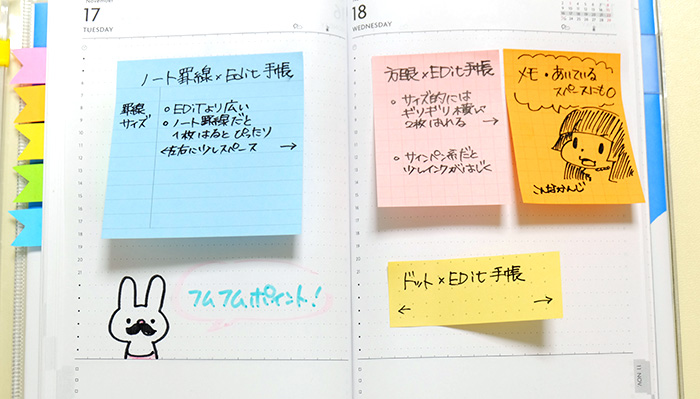 November
17
TUESDAY
ノート罫線×Edit手帳
罫線
サイズ
○EDiTより広い
○ノート罫線だと
1枚はるとぴったり
←左右に少しスペース →
フムフムポイント!
18
WEDNESDAY
方眼×EDit手帳
○サイズ的には
ギリギリ横に
2枚はれる
○サインペン系だと
少しインクがはじく
メモ・あいている
スペースにも○
こんなかんじ
ドット×EDit手帳
← →
11 NOV